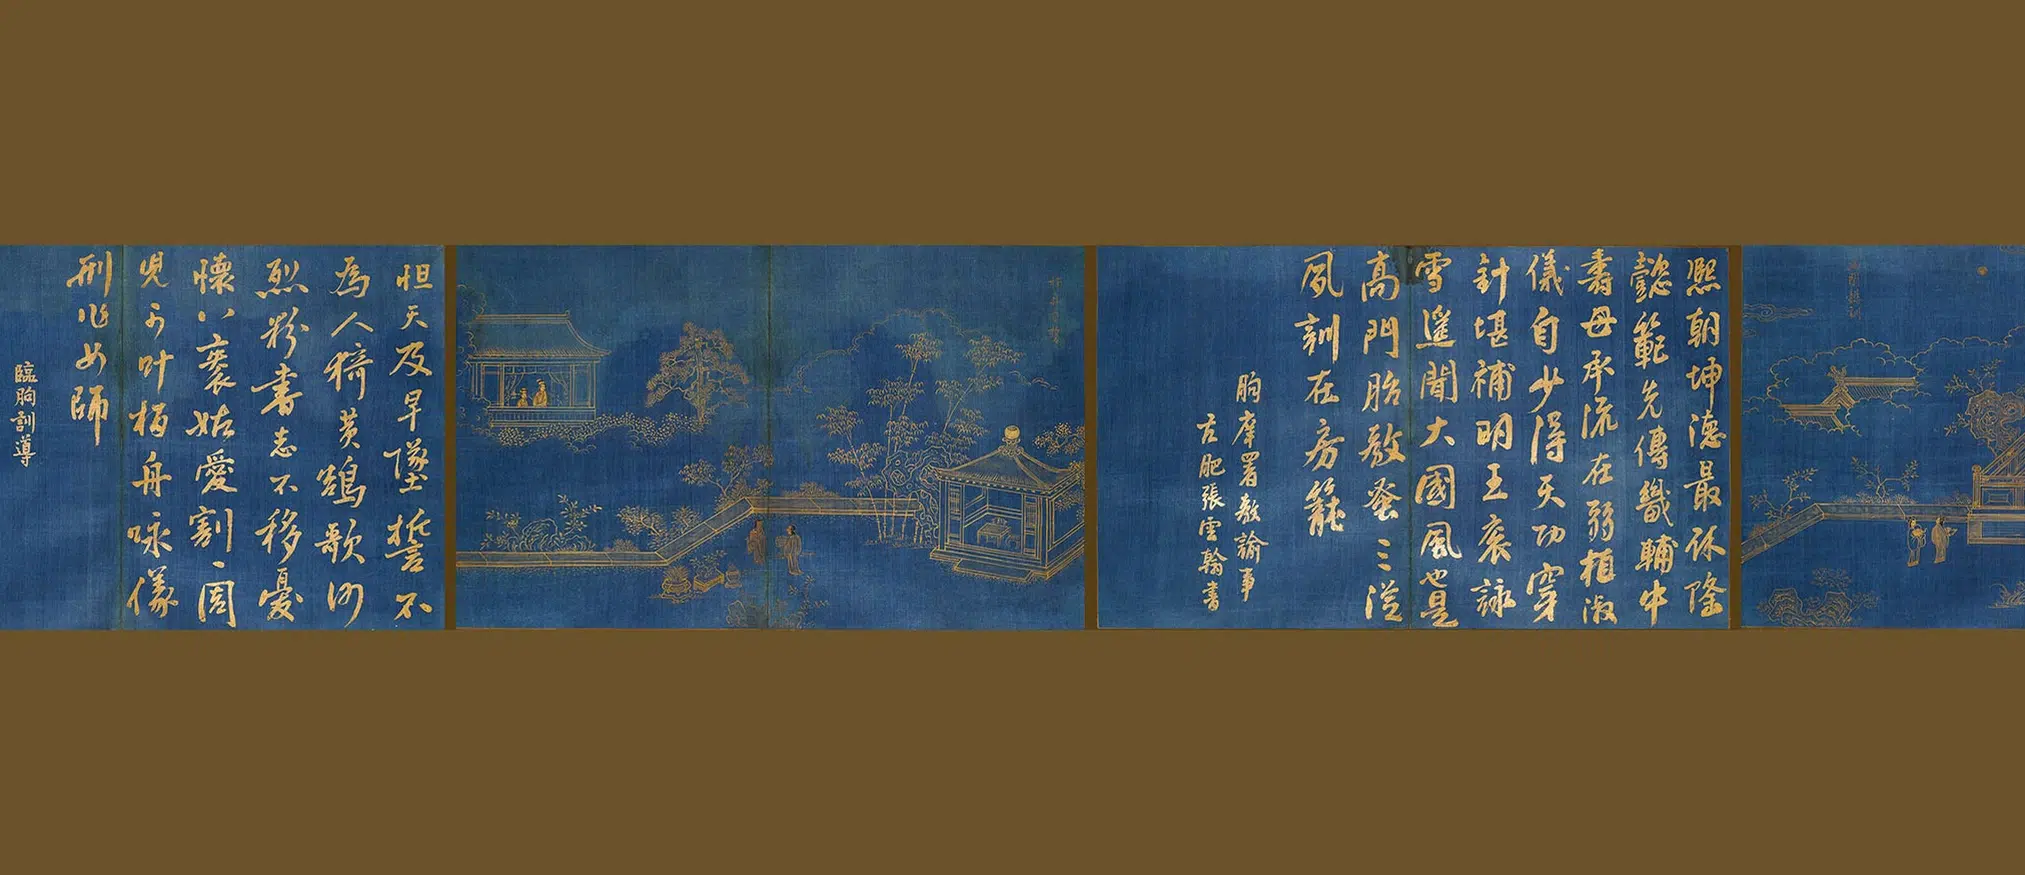 熙朝坤德最休隆
懿範先傳織輔中
壽母承流在弱植淑
儀自少得天功穿
針堪補明王衮詠
雪遥聞大國風豈是
高門胎教蚤三從
夙訓在房籠
朐庠署教諭事
古肥張雲翰書
怛天及早墜誓不
為人猗黃鵠歌
烈粉書志不移憂
懷衮姑愛割周
兒叶栢舟咏儀
刑作女師
臨朐訓導